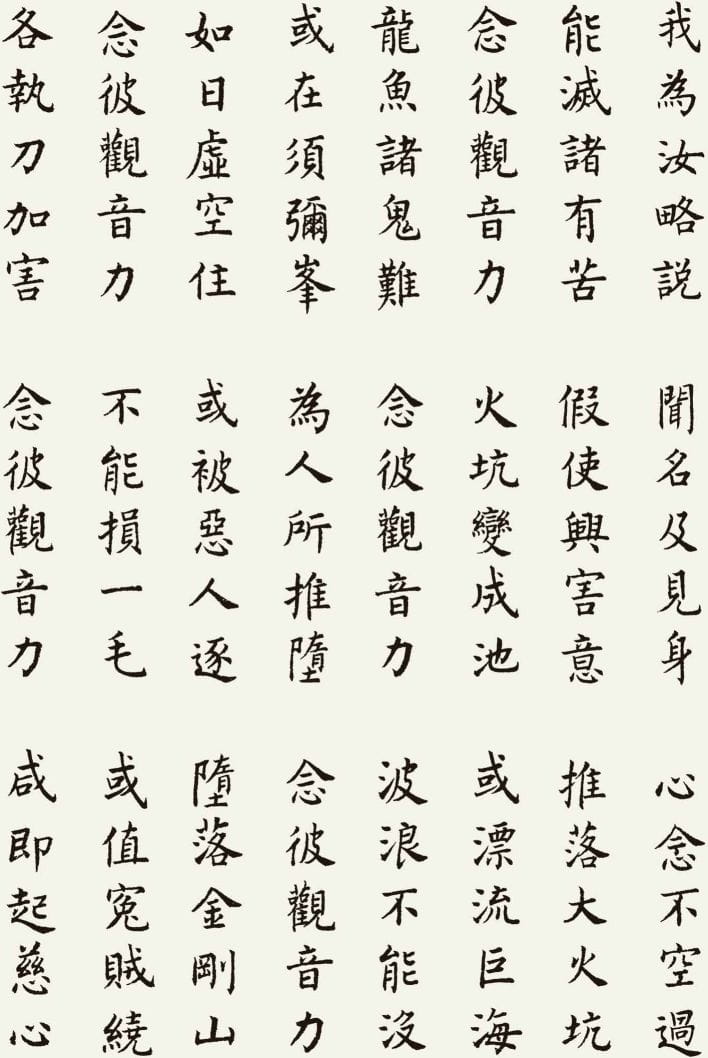 我為汝略説 聞名及見身 心念不空過
能滅諸有苦 假使興害意 推落大火坑
念彼觀音力 火坑變成池 或漂流巨海
龍魚諸鬼難 念彼觀音力 波浪不能没
或在須彌峯 為人所推墮 念彼觀音力
如日虛空住 或被惡人逐 墮落金剛山
念彼觀音力 不能損一毛 或值冤賊繞
各執刀加害 念彼觀音力 咸即起慈心